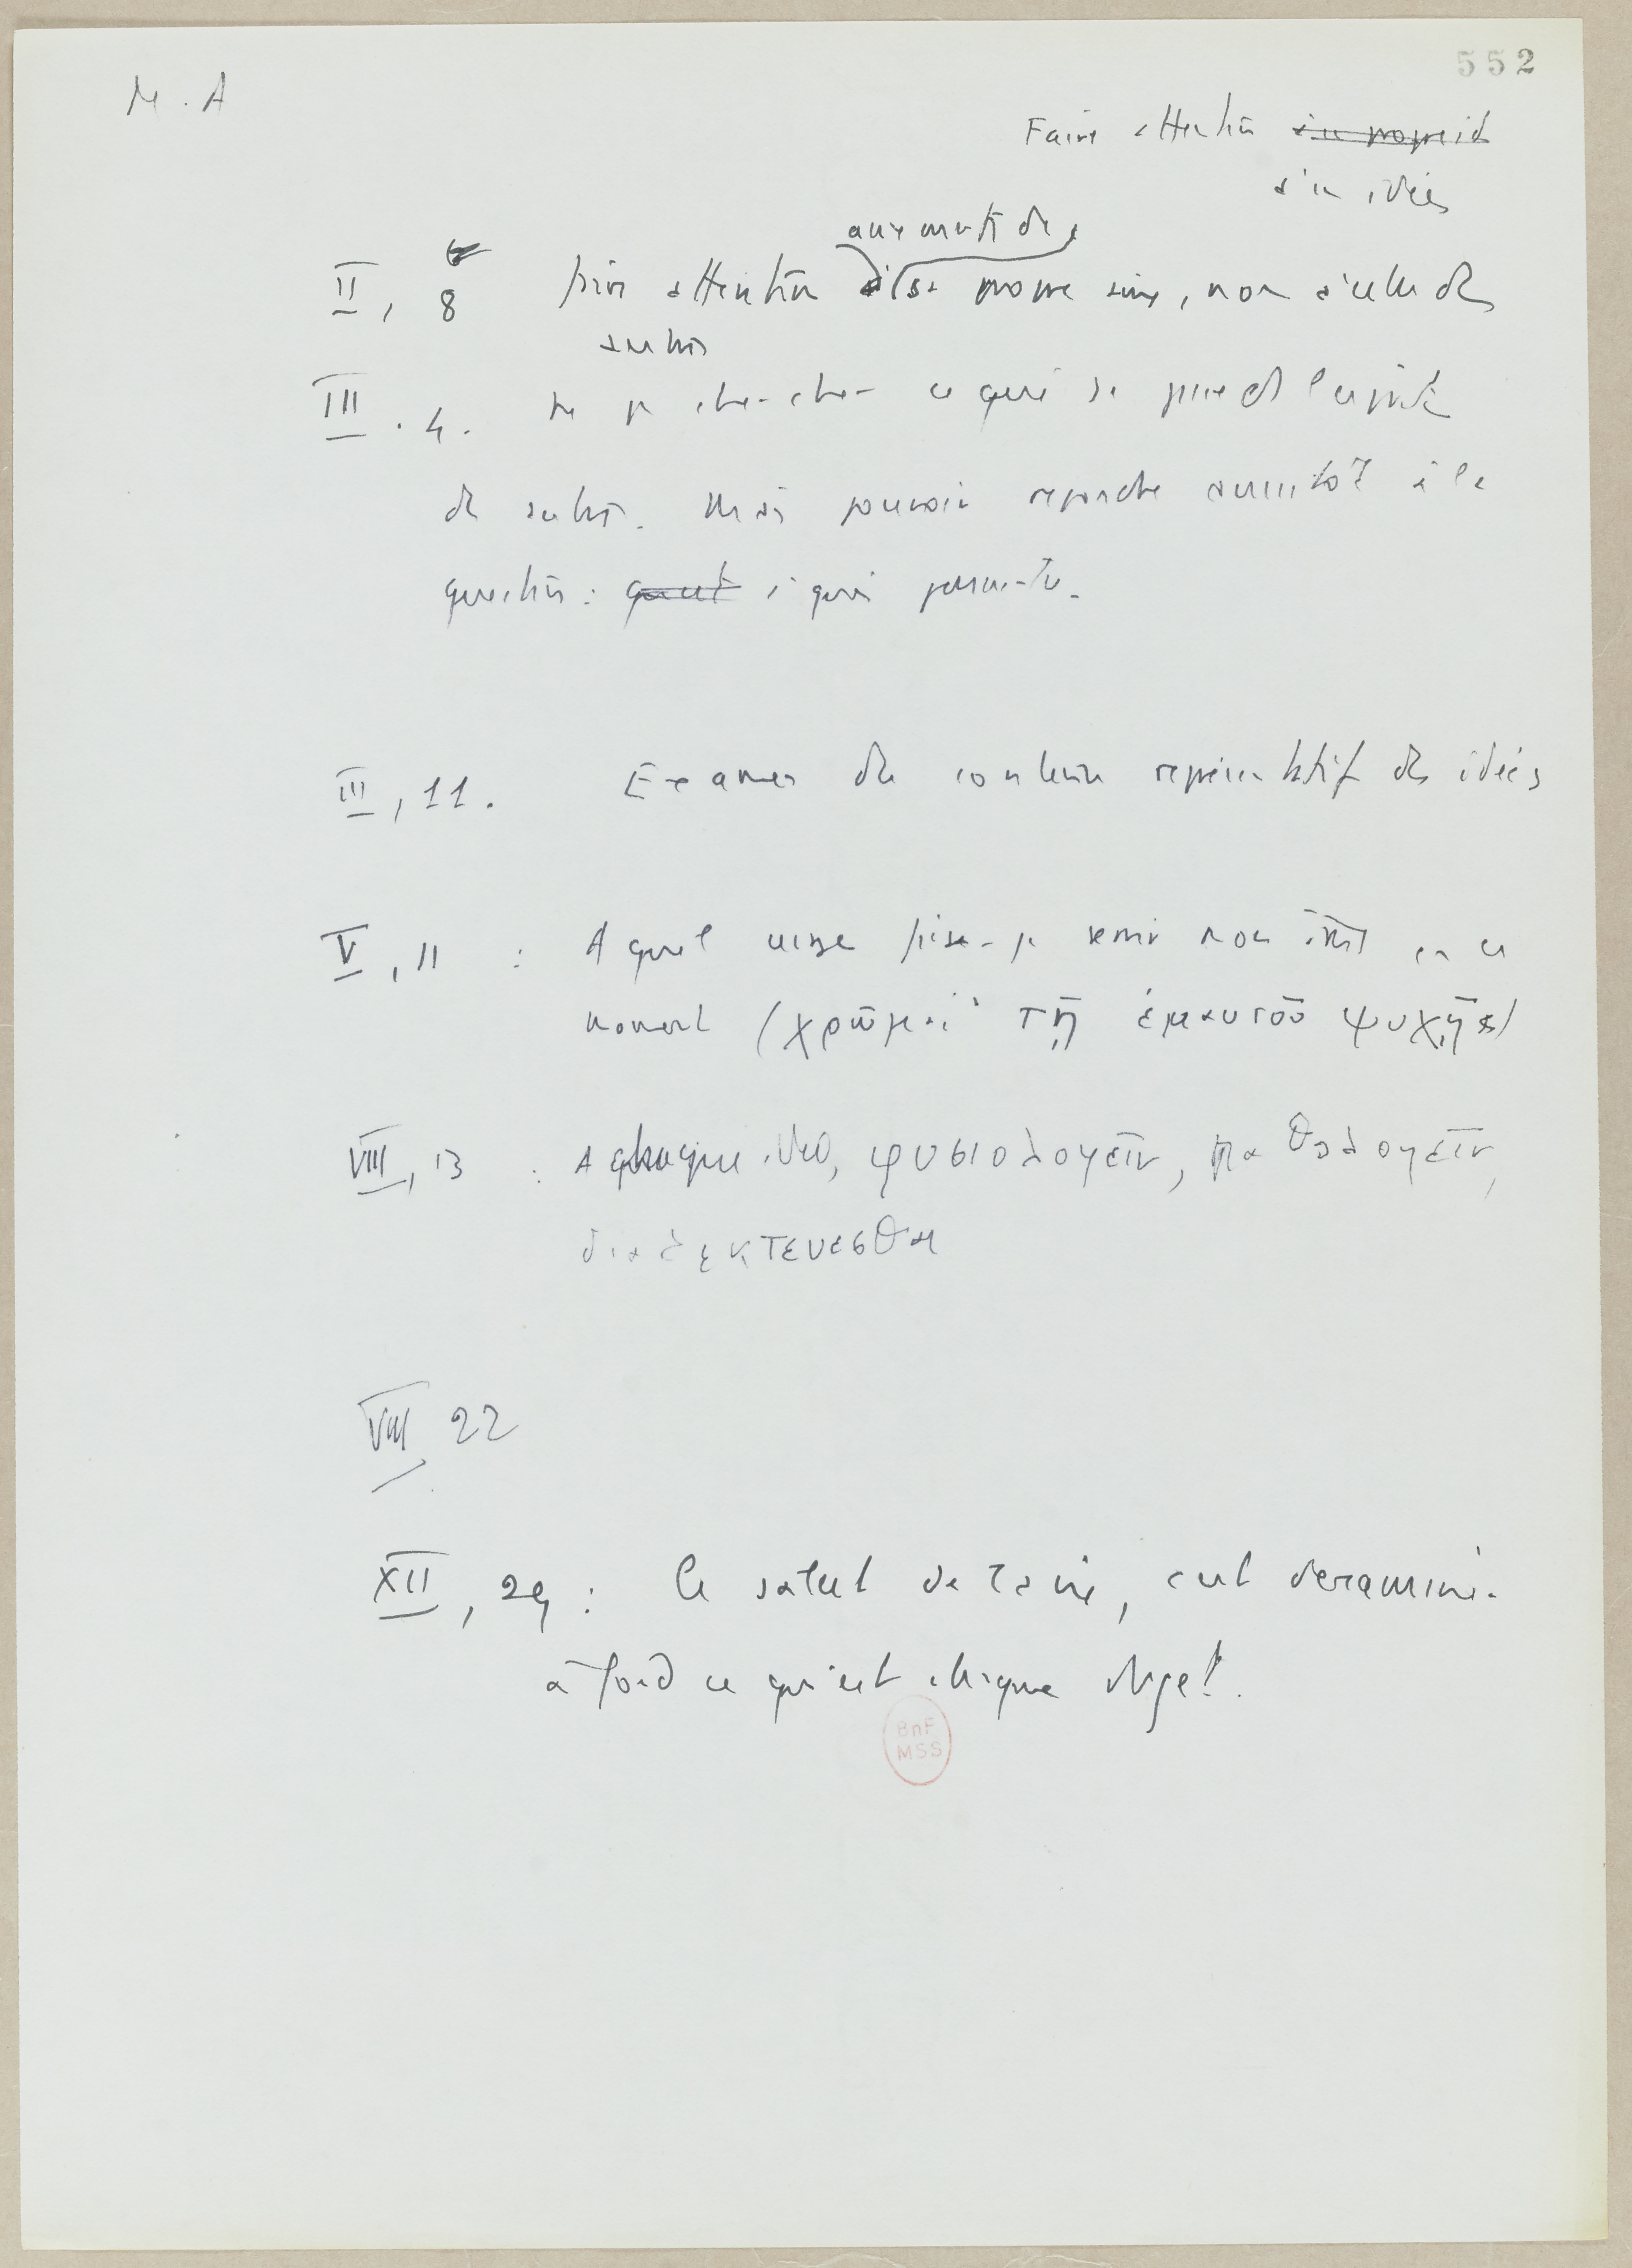 552
M. A
Faire attention à ses propres id
à ses idées
aux mvts de
II, 8 faire attention à sa propre âme, non à celle des
autres
III. 4. ne pas chercher ce qui se passe ds l'esprit
des autres. Mais pouvoir répondre aussitôt à la
question : à quoi penses-tu.
III, 11. Examen du contenu représentatif des idées
V, 11 : A quel usage fais-je servir mon âme en ce
moment (χρῶμαι τῇ ἐμαυτοῦ ψυχῇ)
VIII, 13 : A chaque idée, φυσιολογεῖν, παθολογεῖν,
διαλεκτεύεσθαι
VIII 22
XII, 29 : le salut de la vie, c'est d'examiner
à fond ce qu'est chaque objet.
BnF
MSS